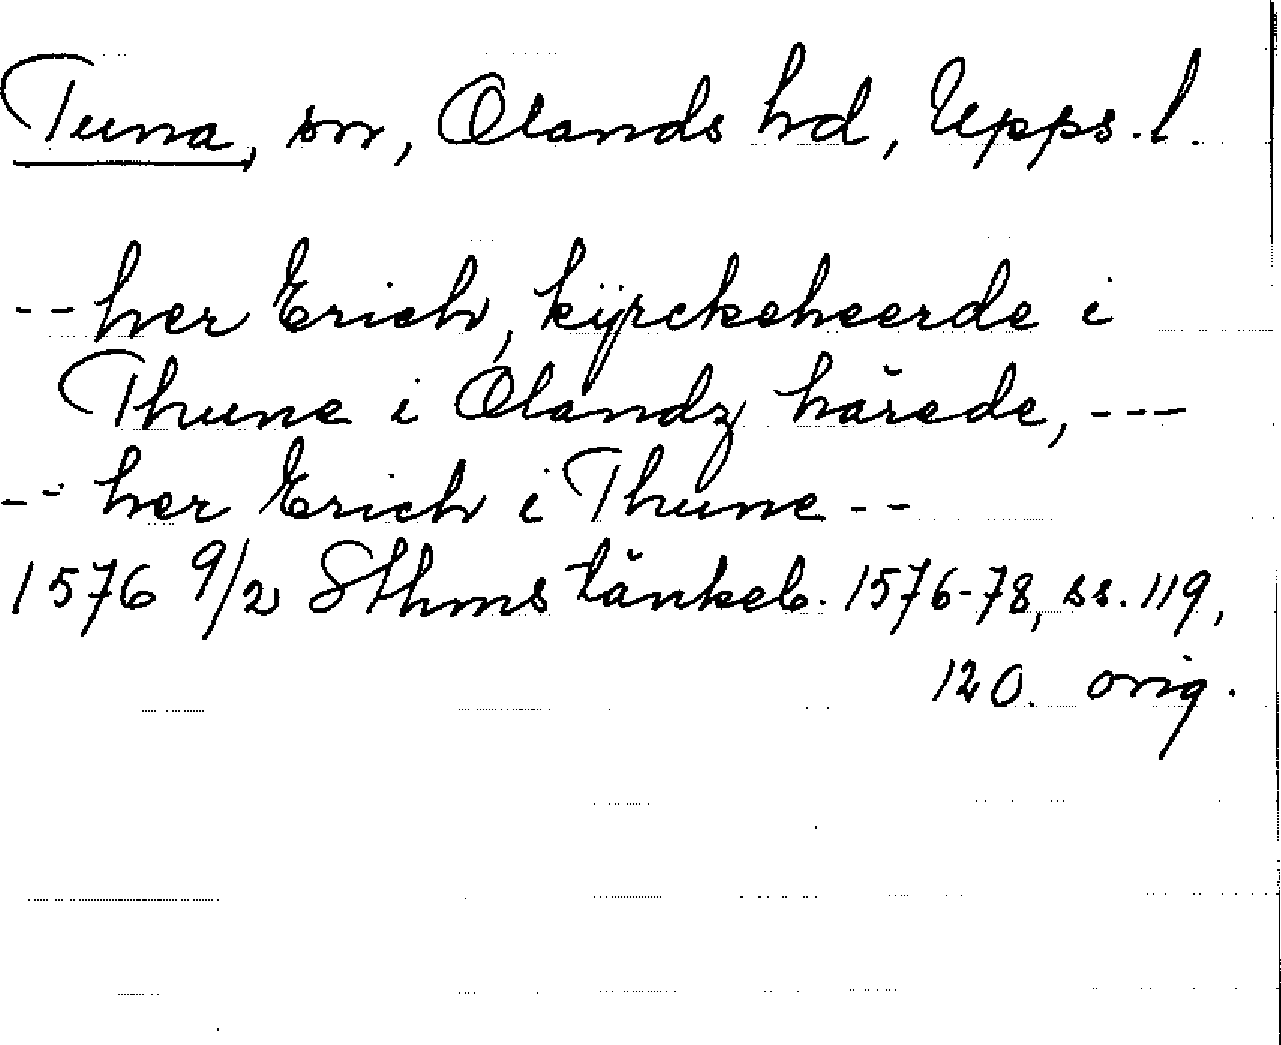 Tuna, sn, Olands hd, Upps. l.
-- her Erich, kijrckeheerde i
Thune i Olandz härede, ---
-- her Erich i Thune --
1576 9/2 Sthms tänkeb. 1576-78, ss. 119,
120. orig.